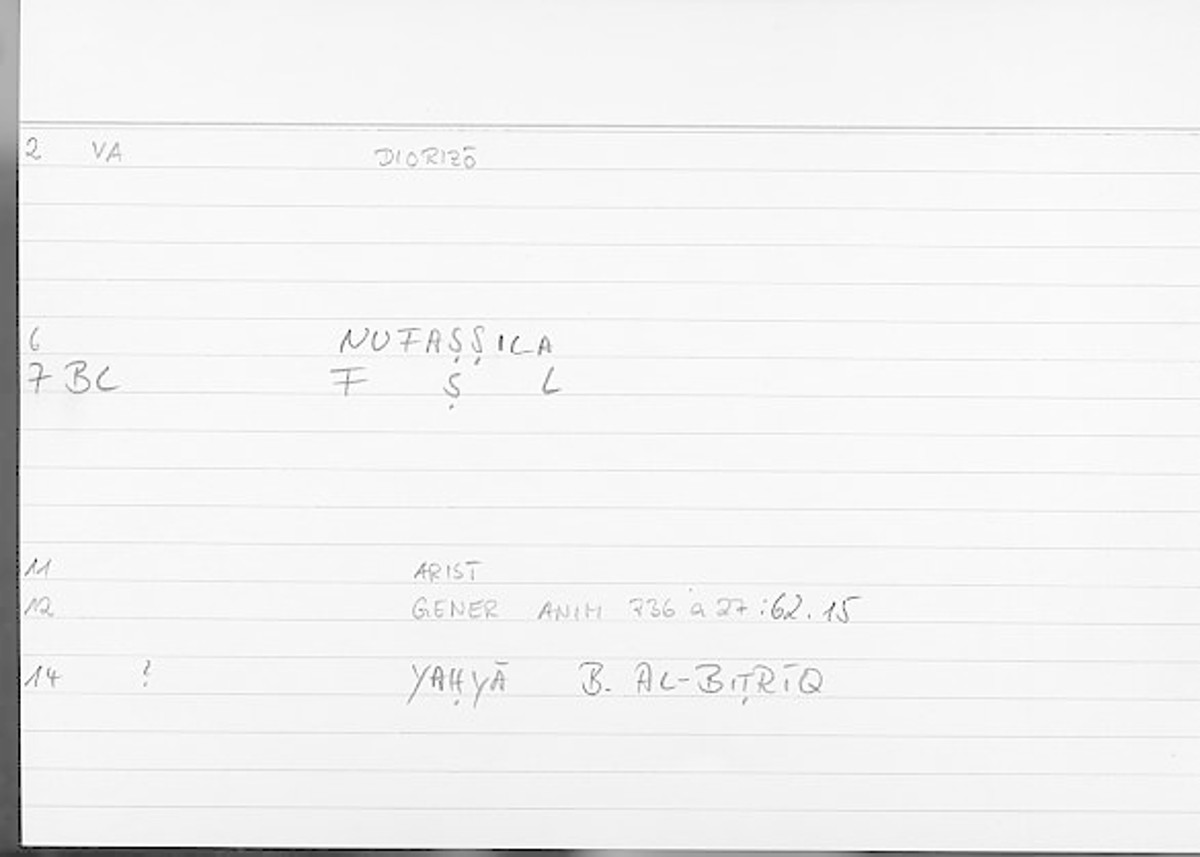 2 VA DIORIZŌ
6 NUFAṢṢILA
7 BC F Ṣ L
11 ARIST
12 GENER ANIM 736 a 27 : 62.15
14 ? YAḤYĀ B. AL-BIṬRĪQ